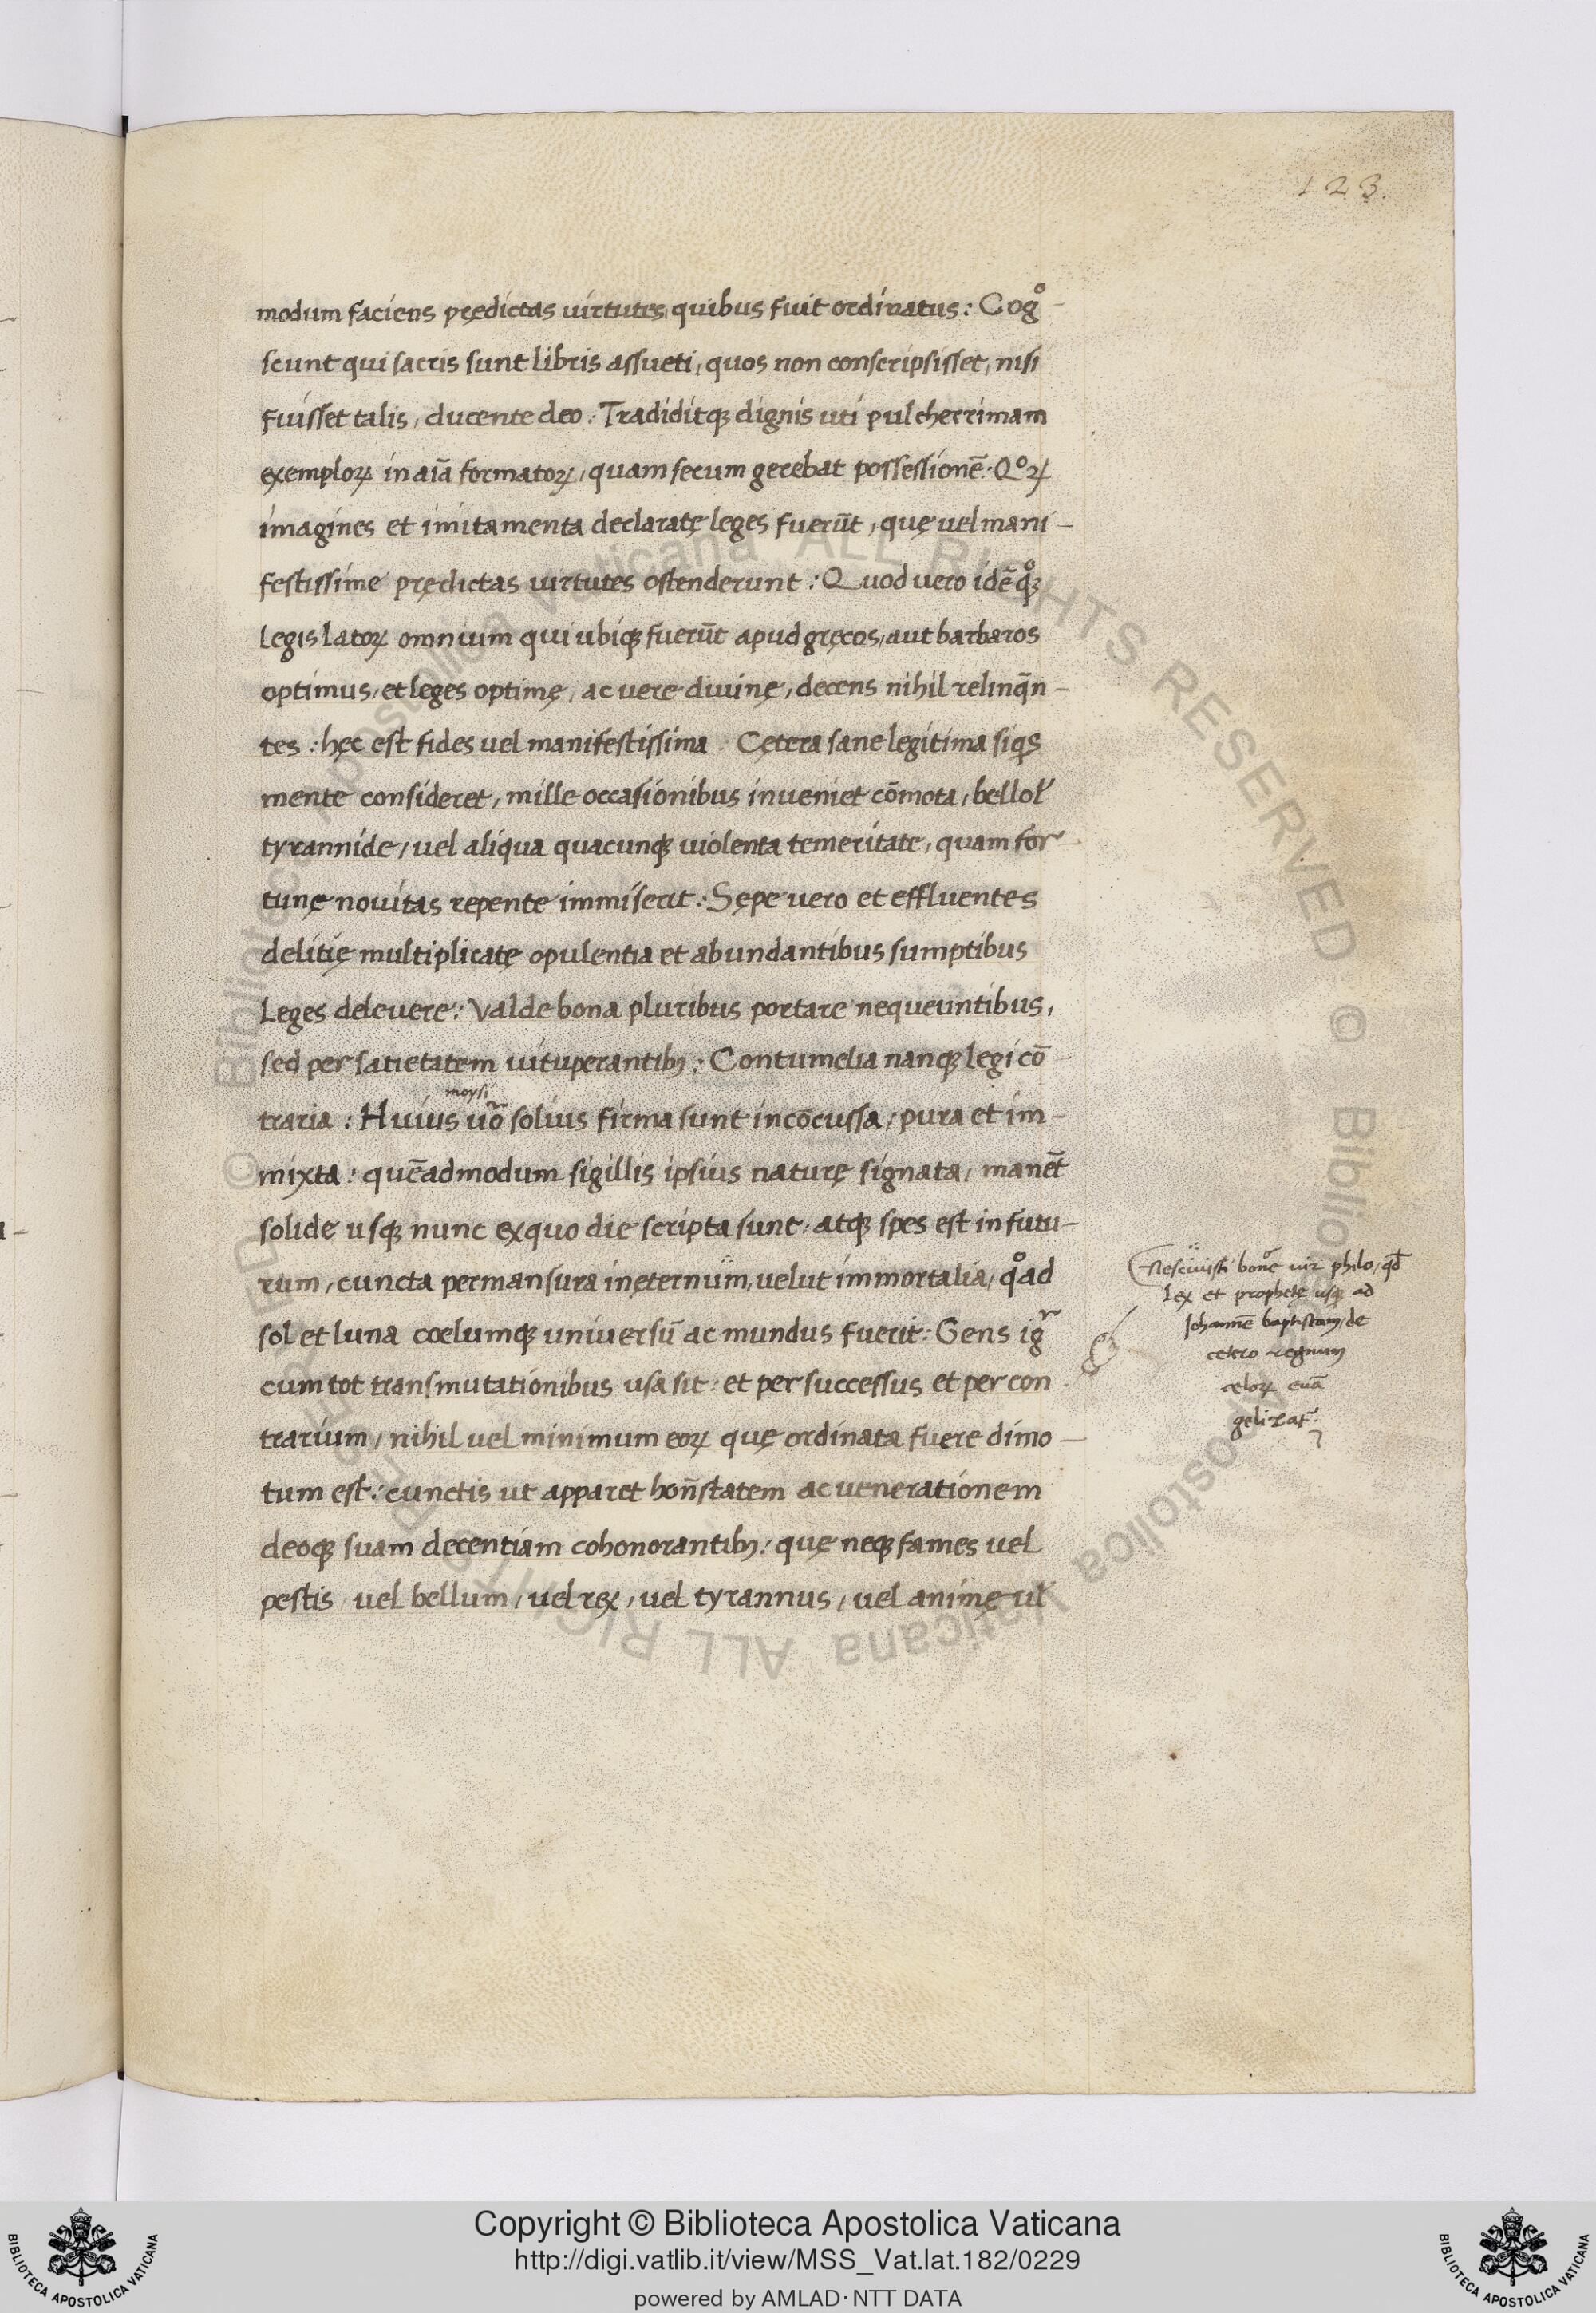 123.
modum faciens prędictas uirtutes, quibus fuit ordinatus: Cogͦ-
scunt qui sacris sunt libris assueti, quos non conscripsisset, nisi
fuisset talis, ducente deo: Tradiditqꝫ dignis uti pulcherrimam
exemploꝝ in aīā formatoꝝ, quam secum gerebat possessionē. Qͦꝝ
imagines et imitamenta declaratę leges fuerūt, quę uel mani-
festissime prędictas uirtutes ostenderunt: Quod uero idē qͦꝫ
Legislatoꝝ omnium qui ubiqꝫ fuerūt apud gręcos, aut barbaros
optimus, et leges optimę, ac uere diuinę, decens nihil relinq̄n-
tes: hęc est fides uel manifestissima. Cętera sane legitima siqͥs
mente consideret, mille occasionibus inueniet cōmota, bello ł
tyrannide, uel aliqua quacunqꝫ uiolenta temeritate, quam for-
tunę nouitas repente immiserit: Sępe uero et effluentes
delitię multiplicatę opulentia et abundantibus sumptibus
Leges deleuere: Valde bona pluribus portare nequeuntibus,
sed per satietatem uituperantibꝫ: Contumelia nanqꝫ legi cō-
moysi
traria: Huius uō solius firma sunt incōcussa, pura et im-
mixta: quēadmodum sigillis ipsius naturę signata, manēt
solide usqꝫ nunc exquo die scripta sunt: atqꝫ spes est in futu-
rum, cuncta permansura in ęternum, uelut immortalia, qͦad
sol et luna coelumqꝫ uniuersū ac mundus fuerit: Gens igr̃
cum tot transmutationibus usa sit: et per successus et per con
trarium, nihil uel minimum eoꝝ quę ordinata fuere dimo-
tum est: cunctis ut apparet hon̄statem ac uenerationem
deoqꝫ suam decentiam cohonorantibꝫ: quę neqꝫ fames uel
pestis, uel bellum, uel rex, uel tyrannus, uel animę ul̃
Nesciuisti bone uir philo, qđ
Lex et prophetę usqꝫ ad
Johannē baptistam, de
cetero regnum
celoꝝ euā
gelizat̃.
Copyright © Biblioteca Apostolica Vaticana
http://digi.vatlib.it/view/MSS_Vat.lat.182/0229
powered by AMLAD·NTT DATA